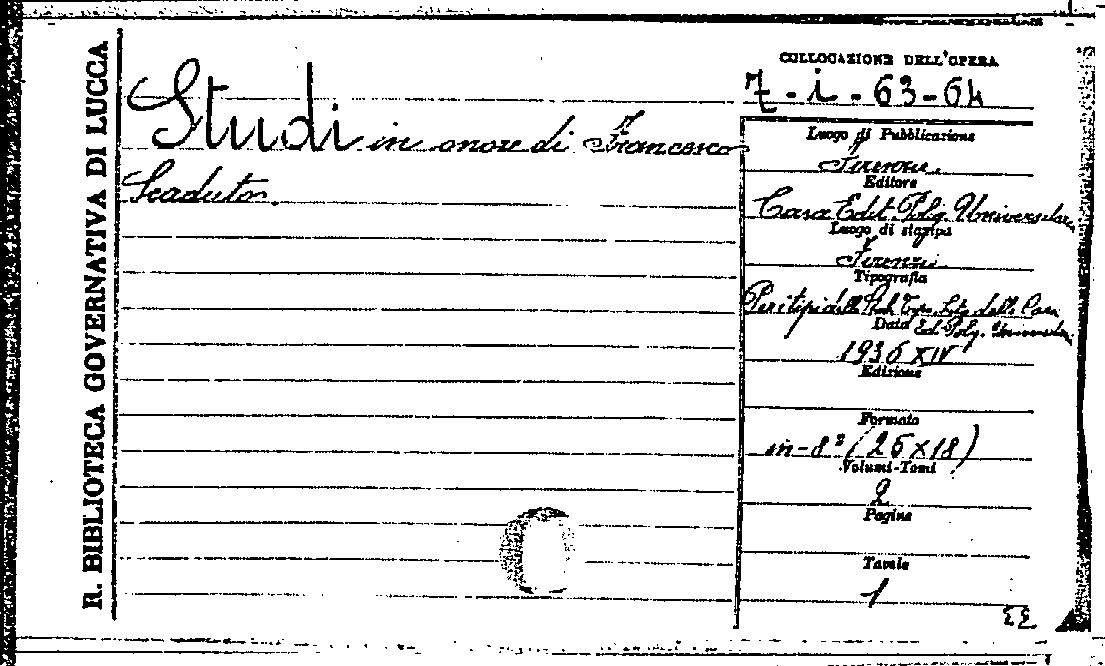 R. BIBLIOTECA GOVERNATIVA DI LUCCA
Studi in onore di Francesco
Scaduto.
COLLOCAZIONE DELL'OPERA
7 - i - 63 - 64
Luogo di Pubblicazione
Firenze.
Editore
Casa Edit. Polig. Universitaria
Luogo di stampa
Firenze
Tipografia
dello Stab. Tipo Lito della Casa
Data Ed. Polig. Universitaria
1936 XIV
Edizione
Formato
in-8° (25 x 18)
Volumi-Tomi
2
Pagine
Tavole
1